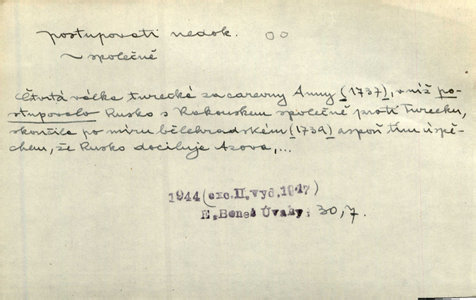 postupovati nedok.
~ společně
Čtvrtá válka turecká za carevny Anny (1737), v níž po-
stupovalo Rusko s Rakouskem společně proti Turecku,
skončila po míru bělehradském (1739) aspoň tím úspě-
chem, že Rusko dociluje Azova,...
1944 (exc.II.vyd.1947)
E.Beneš Úvahy; 30,7.